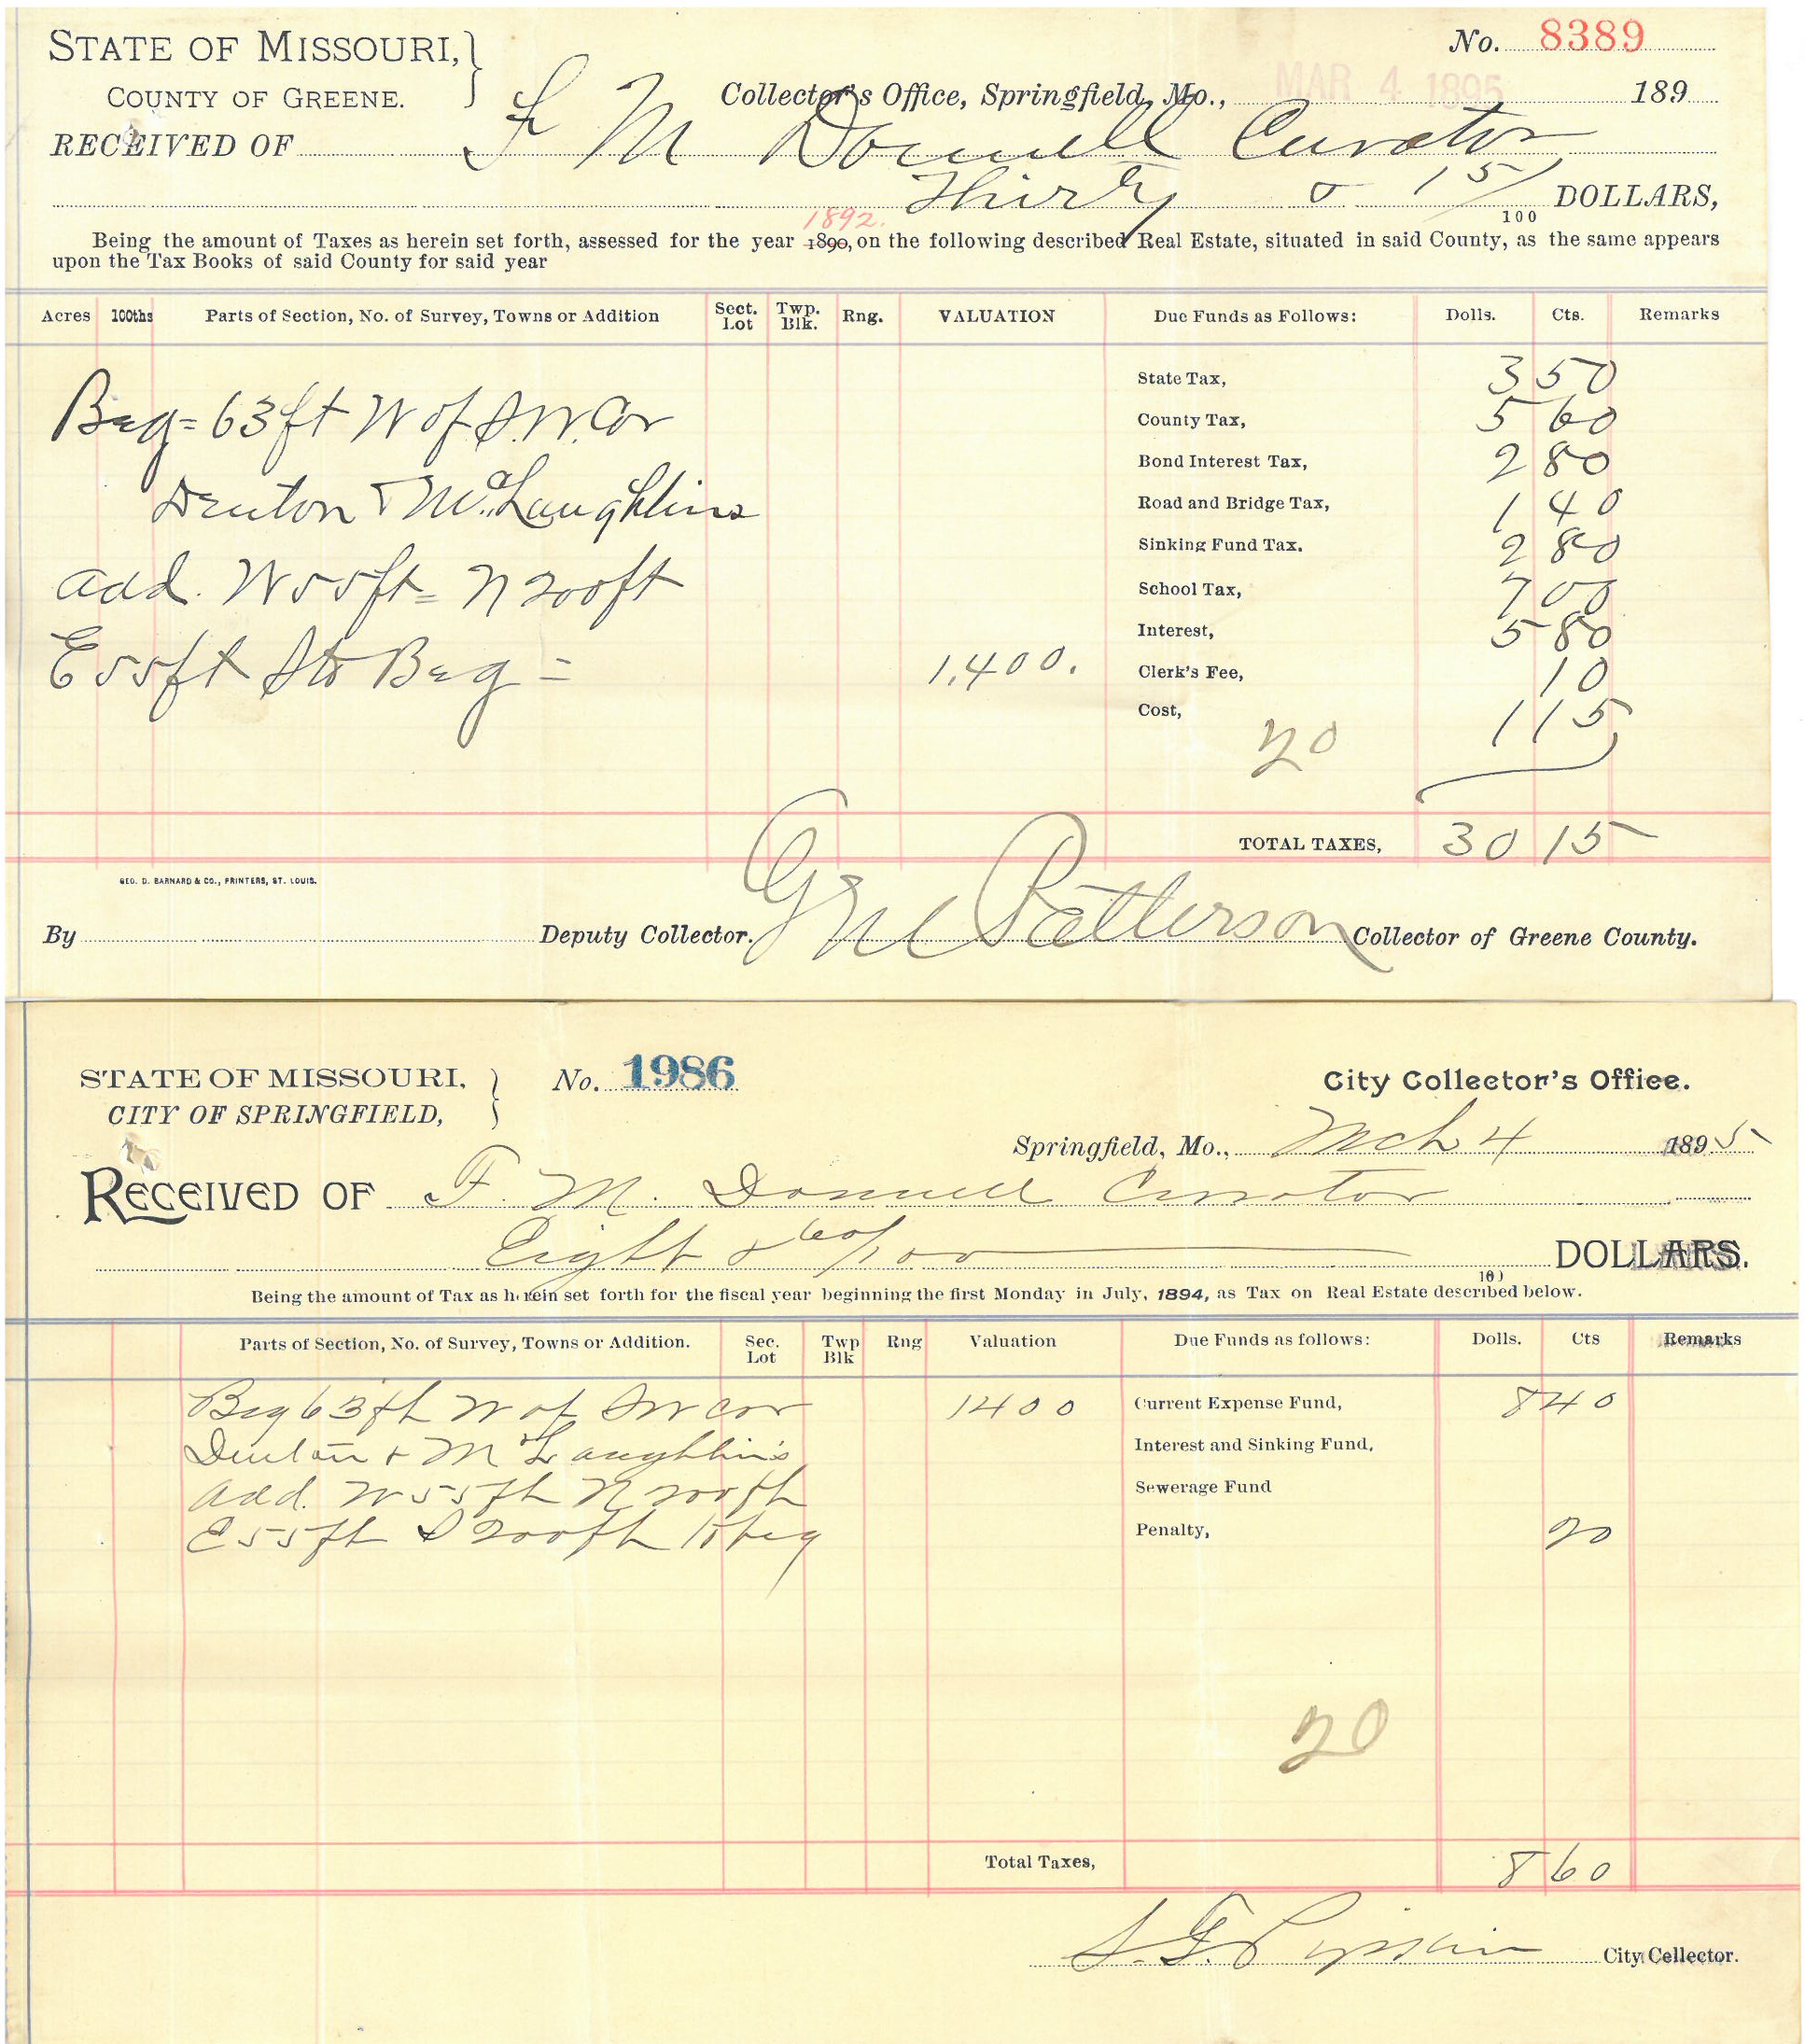 STATE OF MISSOURI, } No. 8389
COUNTY OF GREENE. Collector's Office, Springfield, Mo., MAR 4 1895 189
RECEIVED OF F M Donnell Curator
Thirty & 15/100 DOLLARS,
1892.
Being the amount of Taxes as herein set forth, assessed for the year 1890, on the following described Real Estate, situated in said County, as the same appears
upon the Tax Books of said County for said year
Acres 100ths Parts of Section, No. of Survey, Towns or Addition Sect. Lot Twp. Blk. Rng. VALUATION Due Funds as Follows: Dolls. Cts. Remarks
State Tax, 3 50
Beg = 63 ft W of S.W. Cor County Tax, 5 60
Bond Interest Tax, 2 80
Denton & McLaughlins Road and Bridge Tax, 1 40
Sinking Fund Tax. 2 80
add. W 55 ft = N 200 ft School Tax, 7 00
Interest, 5 80
E 55 ft S to Beg = 1,400. Clerk's Fee, 10
Cost, 1 15
20
TOTAL TAXES, 30 15
GEO. D. BARNARD & CO., PRINTERS, ST. LOUIS.
By Deputy Collector. G M Patterson Collector of Greene County.
STATE OF MISSOURI, } No. 1986 City Collector's Office.
CITY OF SPRINGFIELD,
Springfield, Mo., Mch 4 1895
RECEIVED OF F. M. Donnell Curator
Eight & 60/100 DOLLARS.
100
Being the amount of Tax as herein set forth for the fiscal year beginning the first Monday in July, 1894, as Tax on Real Estate described below.
Parts of Section, No. of Survey, Towns or Addition. Sec. Lot Twp Blk Rng Valuation Due Funds as follows: Dolls. Cts Remarks
Beg 63 ft W of SW cor 1400 Current Expense Fund, 8 40
Denton & McLaughlin's Interest and Sinking Fund,
add. W 55 ft N 200 ft Sewerage Fund
E 55 ft S 200 ft to beg Penalty, 20
20
Total Taxes, 8 60
City Collector.